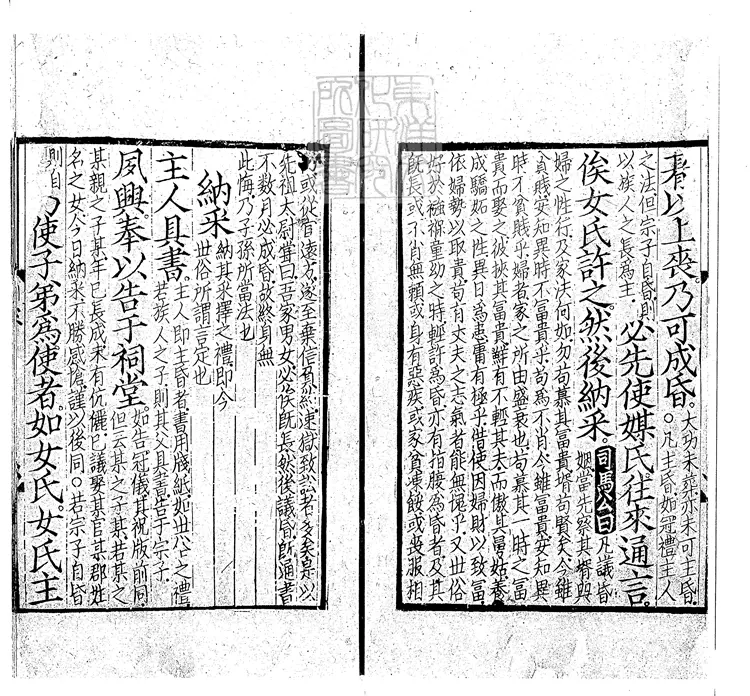 朞以上喪乃可成昏。大功未葬亦未可主昏。
○凡主昏如冠禮主人
之法但宗子自昏則
以族人之長為主。必先使媒氏往來通言。
俟女氏許之然後納采。司馬公曰凡議昏
姻當先察其壻與
婦之性行及家法何如勿苟慕其富貴壻苟賢矣今雖
貧賤安知異時不富貴乎苟為不肖今雖富貴安知異
時不貧賤乎婦者家之所由盛衰也苟慕其一時之富
貴而娶之彼挾其富貴鮮有不輕其夫而傲其舅姑養
成驕妬之性異日為患庸有極乎借使因婦財以致富
依婦勢以取貴苟有丈夫之志氣者能無愧乎又世俗
好於襁褓童幼之時輕許為昏亦有指腹為昏者及其
既長或不肖無賴或身有惡疾或家貧凍餒或喪服相
或從宦遠方遂至棄信負約速獄致訟者多矣是以
先祖太尉嘗曰吾家男女必俟既長然後議昏既通書
不數月必成昏故終身無
此悔乃子孫所當法也
納采納其采擇之禮即今
世俗所謂言定也
主人具書。主人即主昏者書用牋紙如世俗之禮
若族人之子則其父具書告于宗子
夙興奉以告于祠堂。如告冠儀其祝版前同
但云某之子某若某之
某親之子某年已長成未有伉儷已議娶某官某郡姓
名之女今日納采不勝感愴謹以後同○若宗子自昏
則自 乃使子弟為使者如女氏。女氏主